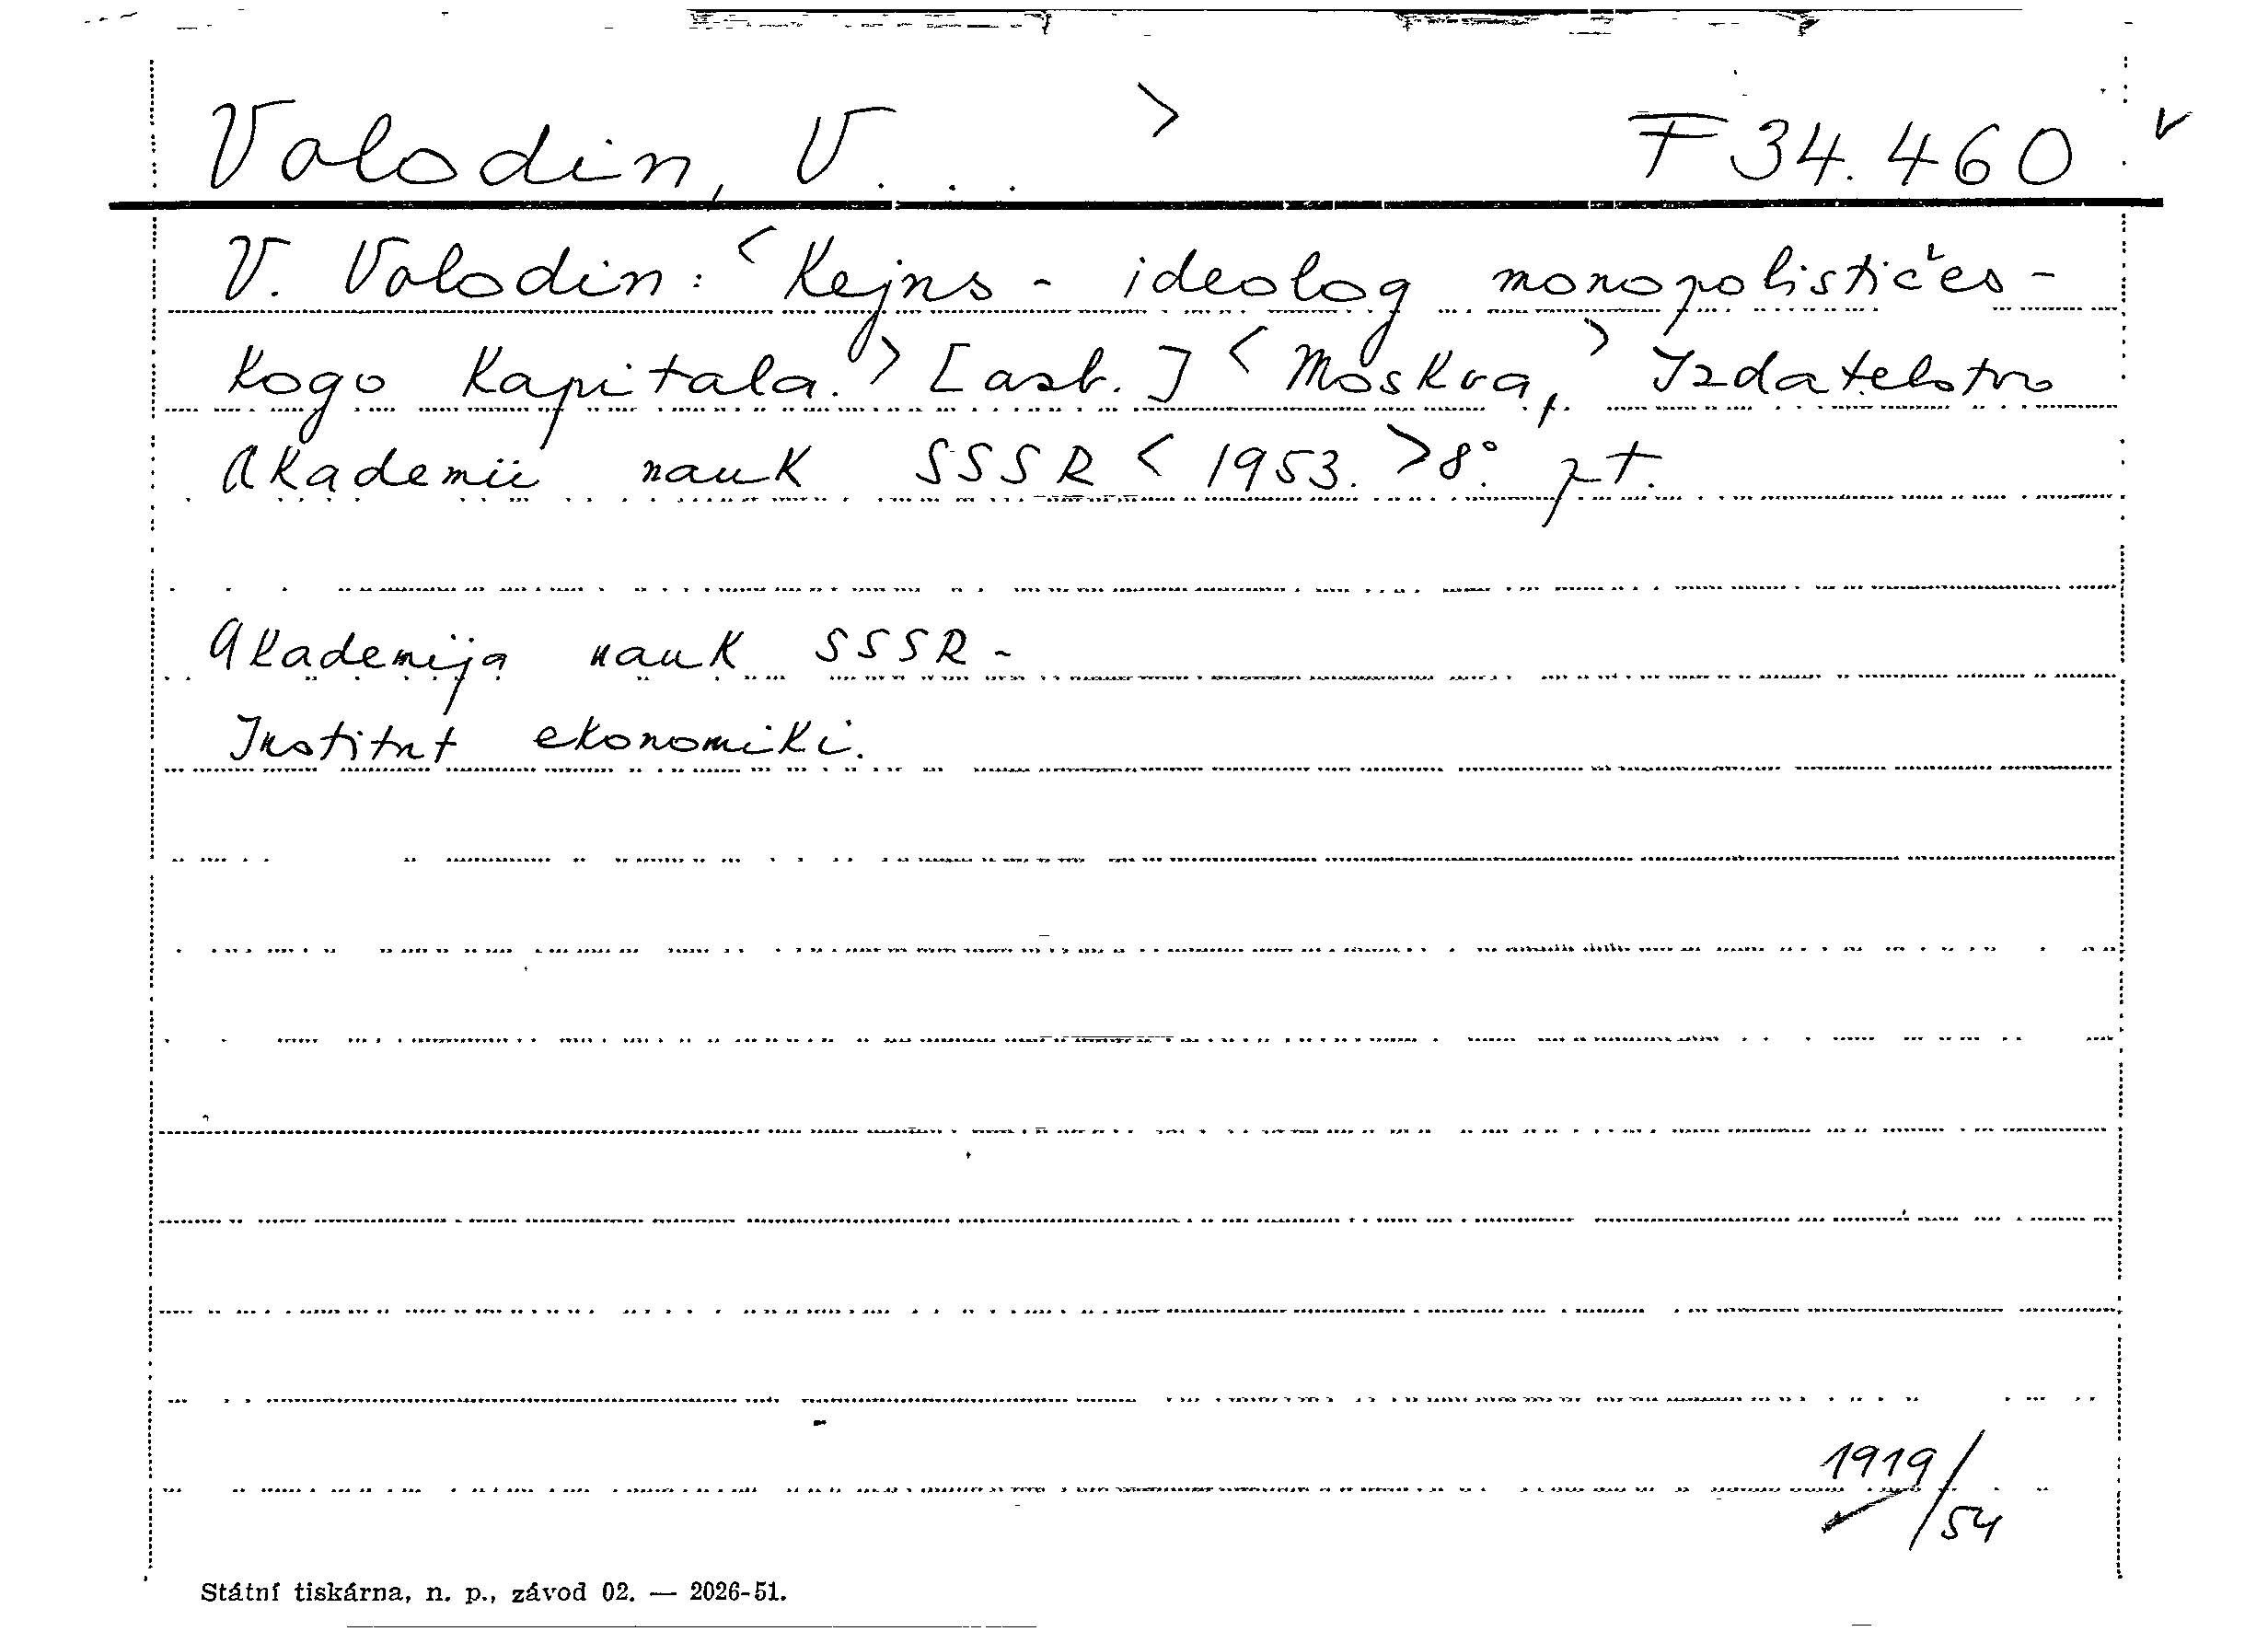 Volodin, V. . . > F 34.460 v
V. Volodin: < Kejns - ideolog monopolističes-
kogo kapitala. > [asb.] < Moskva, > Izdatelstvo
Akademii nauk SSSR < 1953. > 8°. pt.
Akademija nauk SSSR -
Institut ekonomiki.
1919/54
Státní tiskárna, n. p., závod 02. — 2026-51.